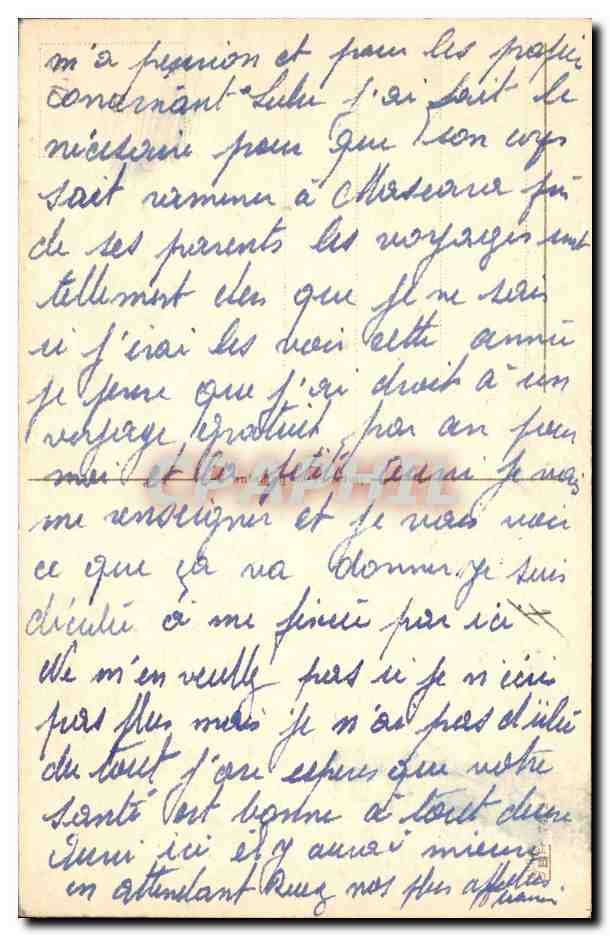 m'a pension et pour les papier
concernant Lulu j'ai fait le
nécesaire pour que son corps
sait ramener à Mascara près
de ses parents les voyages sont
tellement chers que je ne sais
si j'irai les voir cette année
je pense que j'ai droit à un
voyage gratuit par an pour
moi et la petite aussi je vais
me renseigner et je vais voir
ce que ça va donner je suis
décidé à me fixée par ici
Ne m'en veuillez pas si je n'écris
pas plus mais je n'ai pas d'idée
du tout j'ose esperes que votre
santé est bonne à tout deux
Aussi ici il y aurai mieux
en attendant Recevez nos plus affectueux
CPAPHIL